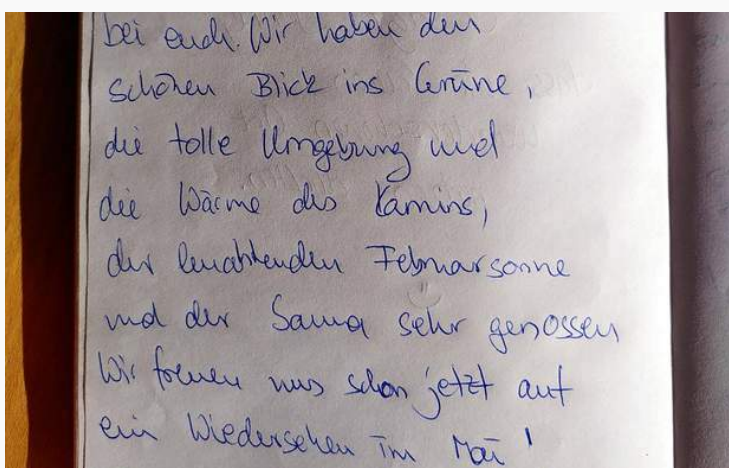 bei euch. Wir haben den
schönen Blick ins Grüne,
die tolle Umgebung und
die Wärme des Kamins,
der leuchtenden Februarsonne
und der Sauna sehr genossen
Wir freuen uns schon jetzt auf
ein Wiedersehen im Mai!